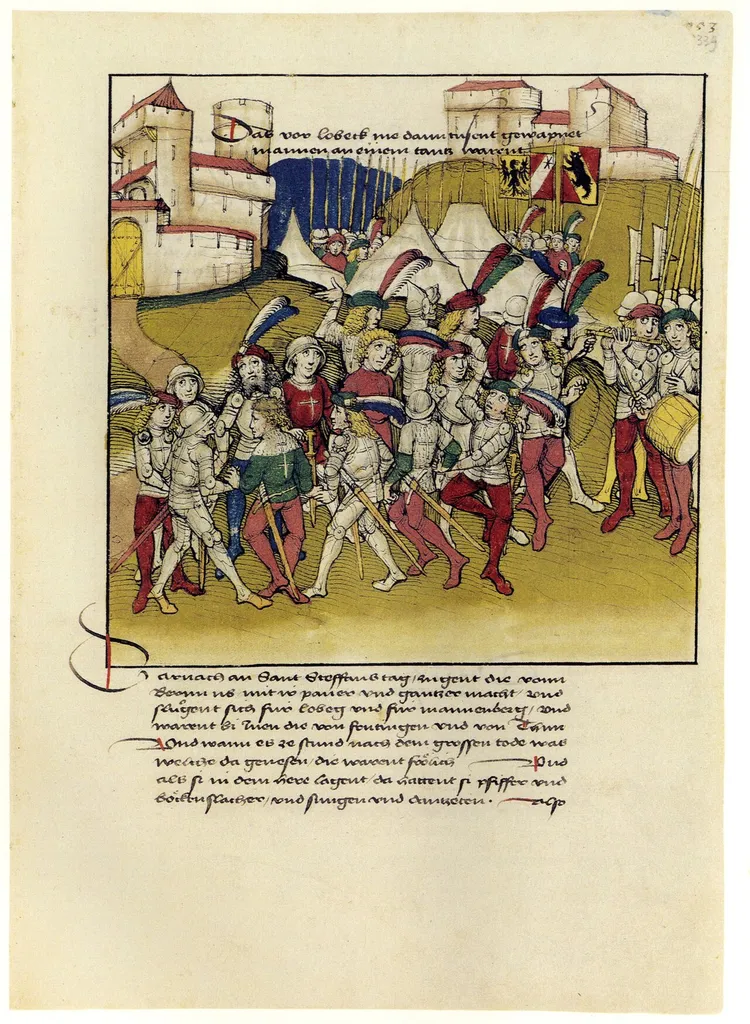 253
339
Das vor lobeck me dann tusent gewapnet
mannen an einem tantz warent
Darnach an Sant Steffans tag, zugent die vonn
Bernn us mit ir paner vnd gantzer macht vnd
slugent sich für lobeg vnd für mannenberg, vnd
warent bi inen die von frutingen vnd von Thun
Vnd wann es ze stund nach dem grossen tode was
welche da genesen, die warent frölich Vnd
als si in dem here lagent, da hattent si pfiffer vnd
böckenslacher, vnd sungen vnd dantzeten · also